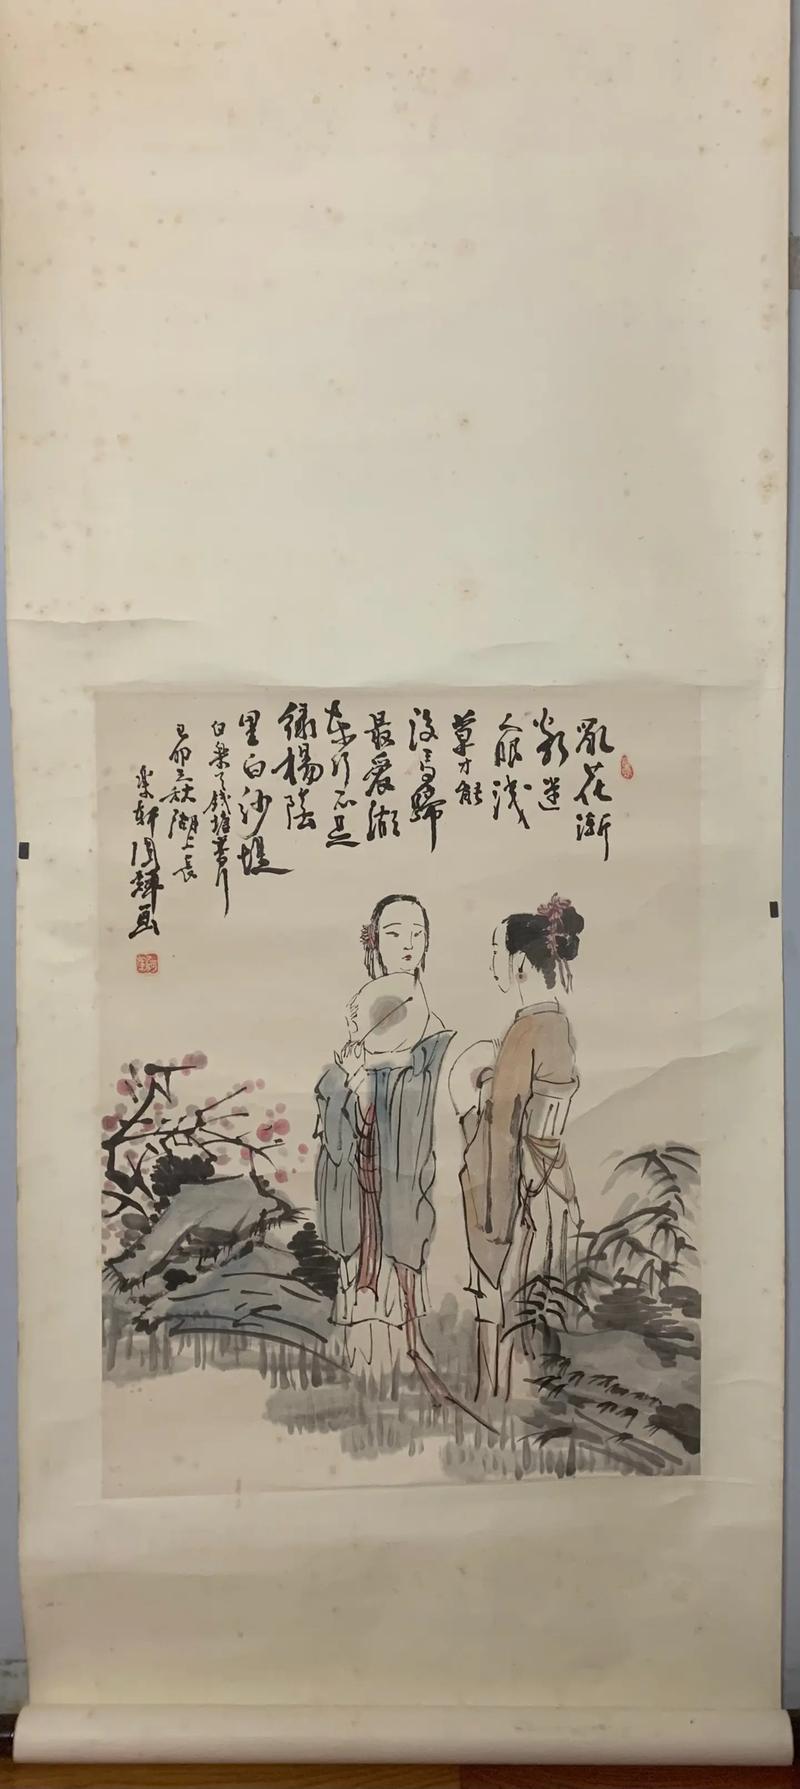 亂花漸
欲迷
人眼淺
草才能
沒馬蹄
最愛湖
東行不足
綠楊陰
里白沙堤
白樂天錢塘
己卯之秋湖上長
樂軒國輝画